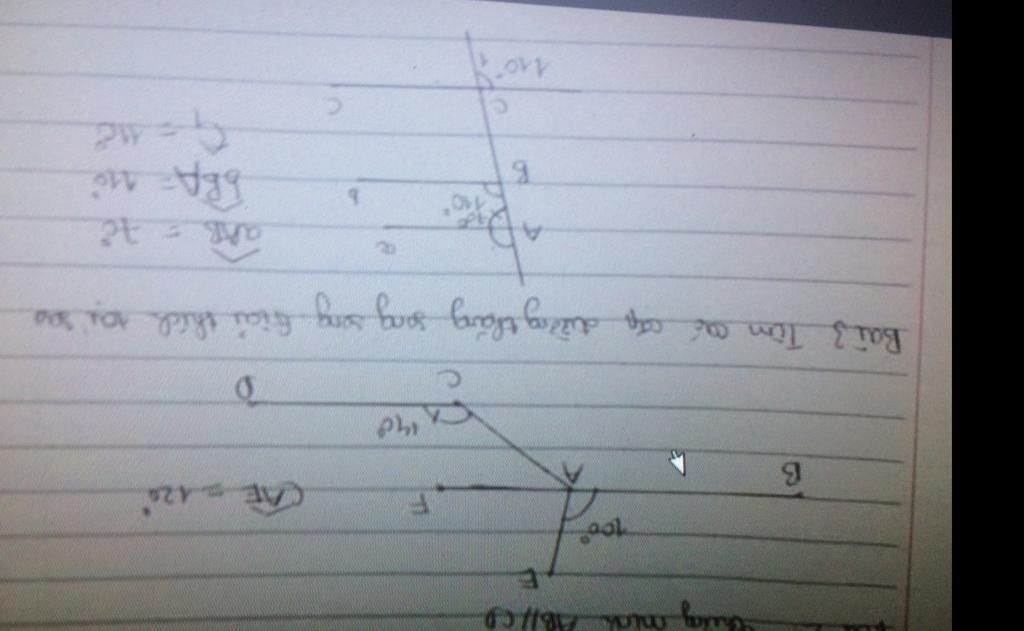 Chứng minh AB//CD
E
100°
B A F CAE = 120°
140°
C D
Bài 3 Tìm các cặp đường thẳng song song Giải thích tại sao
A 70° a aAB = 70°
110°
B b bBA = 110°
C c C1 = 110°
110° 1